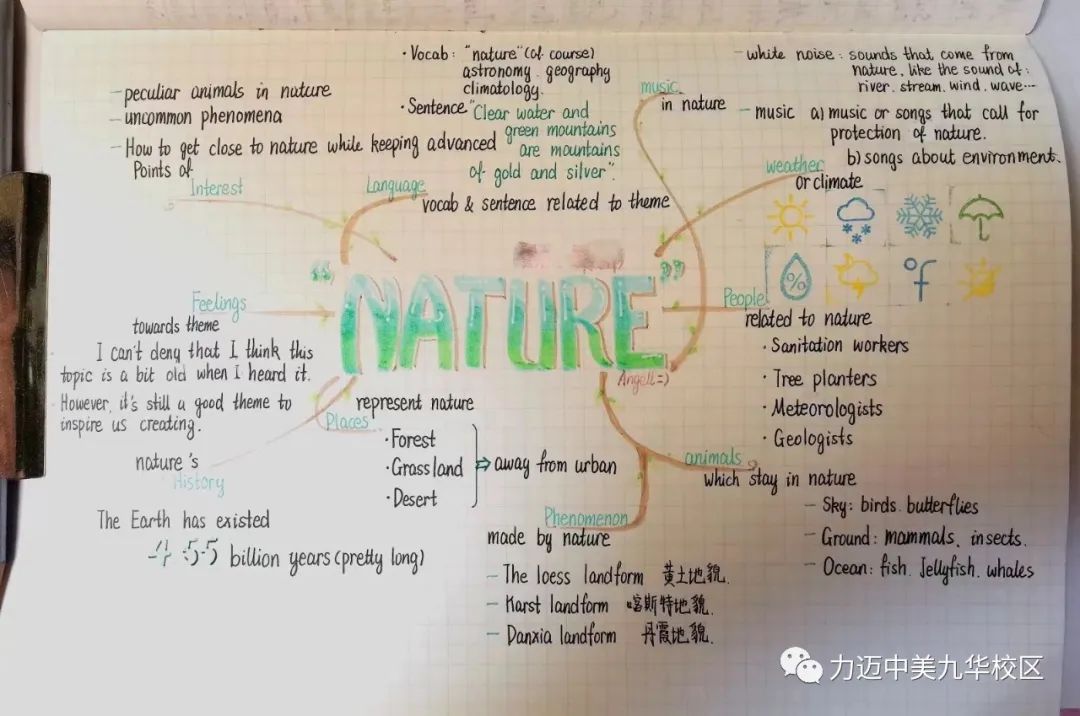 - peculiar animals in nature
- uncommon phenomena
- How to get close to nature while keeping advanced
Points of
Interest
· Vocab: "nature" (of course)
astronomy. geography
climatology.
· Sentence "Clear water and
green mountains
are mountains
of gold and silver".
Language
vocab & sentence related to theme
music
in nature
- white noise: sounds that come from
nature, like the sound of:
river. stream. wind. wave...
- music a) music or songs that call for
protection of nature.
b) songs about environment.
weather
or climate
%
°F
"NATURE"
Angell=)
Feelings
towards theme
I can't deny that I think this
topic is a bit old when I heard it.
However, it's still a good theme to
inspire us creating.
People
related to nature
· Sanitation workers
· Tree planters
· Meteorologists
· Geologists
Places
represent nature
· Forest
· Grassland
· Desert
⇒ away from urban
nature's
History
The Earth has existed
4.55 billion years (pretty long)
Phenomenon
made by nature
- The loess landform 黄土地貌.
- Karst landform 喀斯特地貌.
- Danxia landform 丹霞地貌.
animals
which stay in nature
- Sky: birds. butterflies
- Ground: mammals. insects.
- Ocean: fish. Jellyfish. whales
力迈中美九华校区